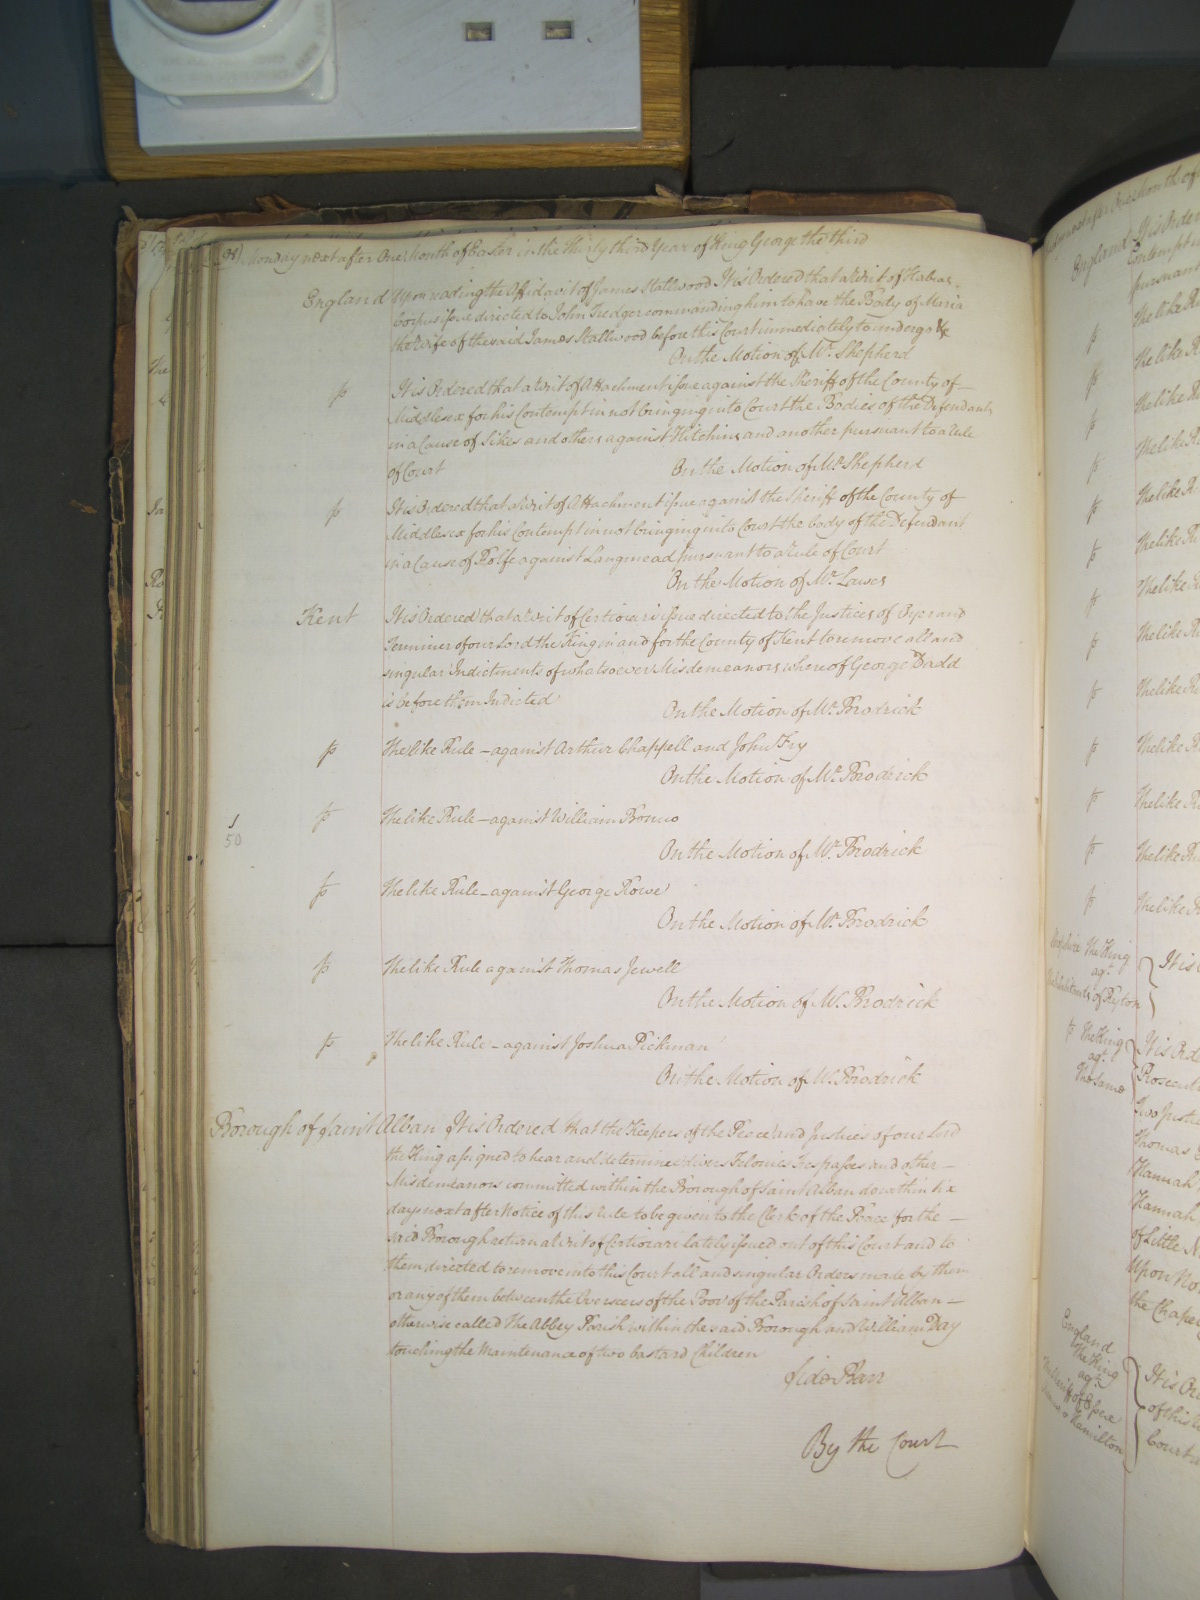 Monday next after One Month of Easter in the Thirty third Year of King George the third
England Upon reading the Affidavit of James Stallwood It is Ordered that a Writ of Habeas
Corpus issue directed to John Tredger commanding him to have the Body of Maria
the Wife of the said James Stallwood before this Court immediately to undergo &c
On the Motion of Mr. Shepherd
p It is Ordered that a Writ of Attachment issue against the Sheriff of the County of
Middlesex for his Contempt in not bringing into Court the Bodies of the Defendants
in a Cause of Sikes and others against Hitchins and another pursuant to a Rule
of Court
On the Motion of Mr. Shepherd
p It is Ordered that a Writ of Attachment issue against the Sheriff of the County of
Middlesex for his Contempt in not bringing into Court the body of the Defendant
in a Cause of Rolfe against Langmead pursuant to a Rule of Court
On the Motion of Mr. Lawes
Kent It is Ordered that a Writ of Certiorari issue directed to the Justices of Oyer and
Terminer of our Lord the King in and for the County of Kent to remove all and
singular Indictments of whatsoever Misdemeanors whereof George Dadd
is before them Indicted
On the Motion of Mr. Brodrick
p The like Rule - against Arthur Chappell and John Fry
On the Motion of Mr. Brodrick
p The like Rule - against William
50
On the Motion of Mr. Brodrick
p The like Rule - against George Rowe
On the Motion of Mr. Brodrick
p The like Rule against Thomas Jewell
On the Motion of Mr. Brodrick
p The like Rule - against Joshua Pickman
On the Motion of Mr. Brodrick
Borough of Saint Alban It is Ordered that the Keepers of the Peace and Justices of our Lord
the King assigned to hear and determine divers Felonies Trespasses and other -
Misdemeanors committed within the Borough of Saint Alban do within six
days next after Notice of this rule to be given to the Clerk of the Peace for the -
said Borough return a Writ of Certiorari lately issued out of this Court and to
them directed to remove into this Court all and singular Orders made by them
or any of them between the Overseers of the Poor of the Parish of Saint Alban -
otherwise called The Abbey Parish within the said Borough and William Day
touching the Maintenance of two bastard Children
Side Bar
By the Court
England
p The like
p The like
p The like
p The like
p The like
p The like
p The like
p The like
p The like
p The like
p The like
p The like
p The like
The King
agt.
p The King
agt.
The Same
Two Justi
Thomas
Hannah
Hannah
of Little
Upon No
the Chape
England
The King
agt.
Hamilton
It is Or
of this
Court